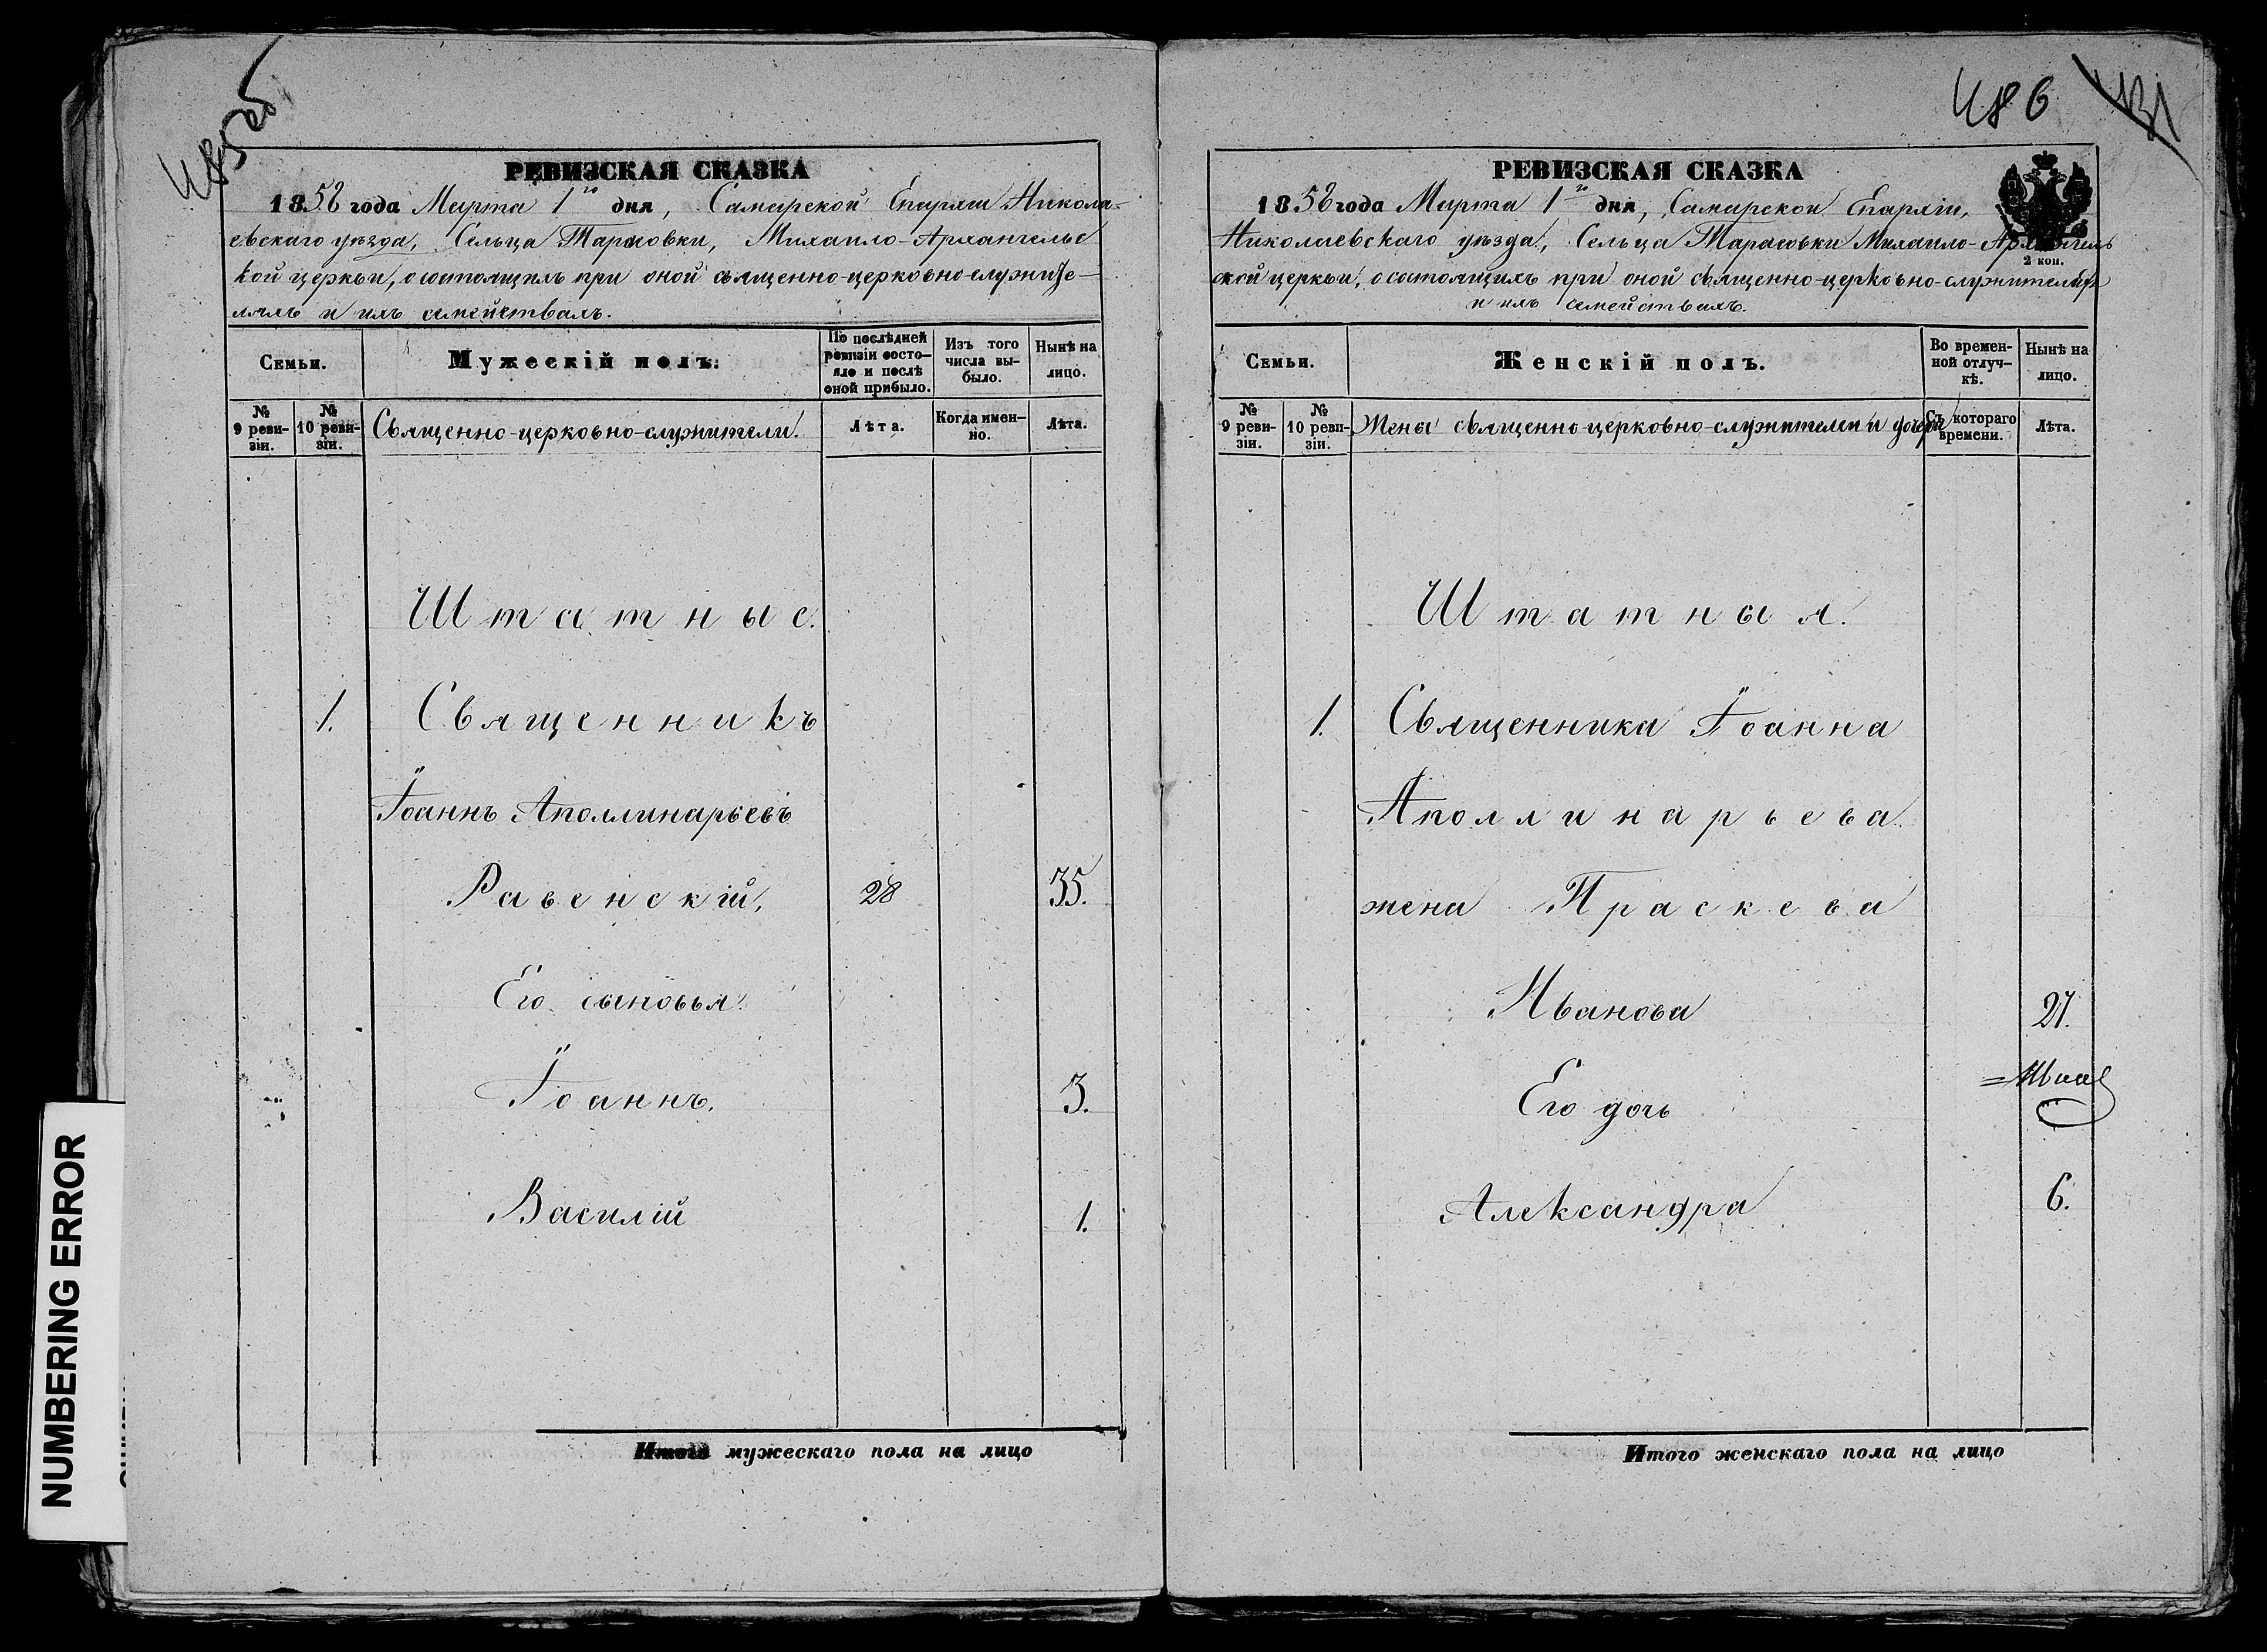 485об
РЕВИЗСКАЯ СКАЗКА
1858 года Марта 1го дня, Самарской Епархіи Никола-
евскаго уѣзда, Сельца Тарасовки, Михаило-Архангельс
кой церкви, о состоящихъ при оной священно-церковно-служите-
ляхъ и ихъ семействахъ.
Семьи.
Мужескій полъ.
По послѣдней ревизіи состо-яло и послѣ оной прибыло.
Изъ того числа вы-было.
Нынѣ на лицо.
№ 9 реви-зіи.
№ 10 реви-зіи.
Священно-церковно-служители.
Лѣта.
Когда имен-но.
Лѣта.
Штатные.
1. Священникъ
Іоаннъ Аполлинарьевъ
Равенскій, 28 35.
Его сыновья:
Іоаннъ. 3.
Василій 1.
Итого мужескаго пола на лицо
486 431
РЕВИЗСКАЯ СКАЗКА
1858 года Марта 1го дня, Самарской Епархіи,
Николаевскаго уѣзда, Сельца Тарасовки Михаило-Архангель
2 коп.
ской церкви, о состоящихъ при оной священно-церковно-служителяхъ
и ихъ семействахъ.
Семьи.
Женскій полъ.
Во времен-ной отлуч-кѣ.
Нынѣ на лицо.
№ 9 реви-зіи.
№ 10 реви-зіи.
Жены священно-церковно-служителей и дочери
Съ котораго времени.
Лѣта.
Штатныя.
1. Священника Іоанна
Аполлинарьева
жена Праскева
Иванова 27.
Его дочь
Александра 6.
Итого женскаго пола на лицо
NUMBERING ERROR